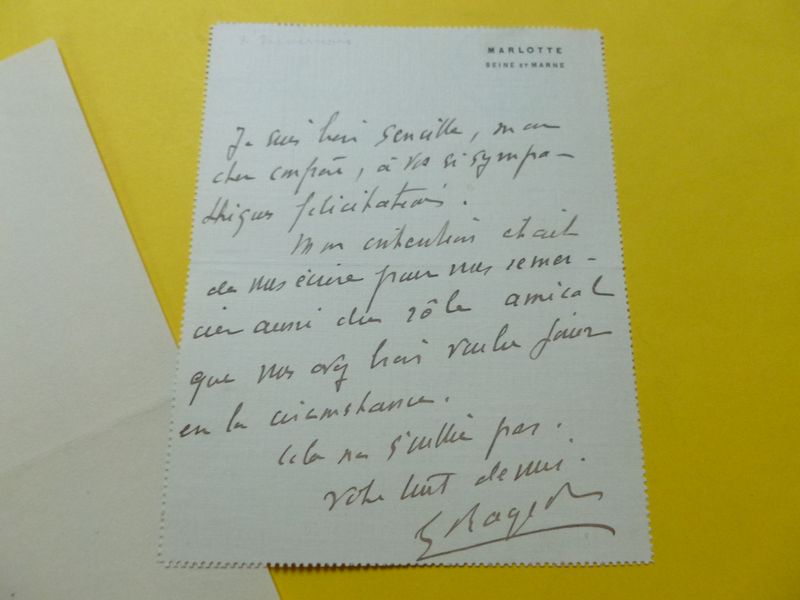 MARLOTTE
SEINE ET MARNE
Je suis bien sensible, mon
cher confrère, à vos si sympa-
thiques félicitations.
Mon intention était
de vous écrire pour vous remer-
cier aussi du rôle amical
que vous avez bien voulu jouer
en la circonstance.
Cela ne s'oublie pas.
Votre tout dévoué.